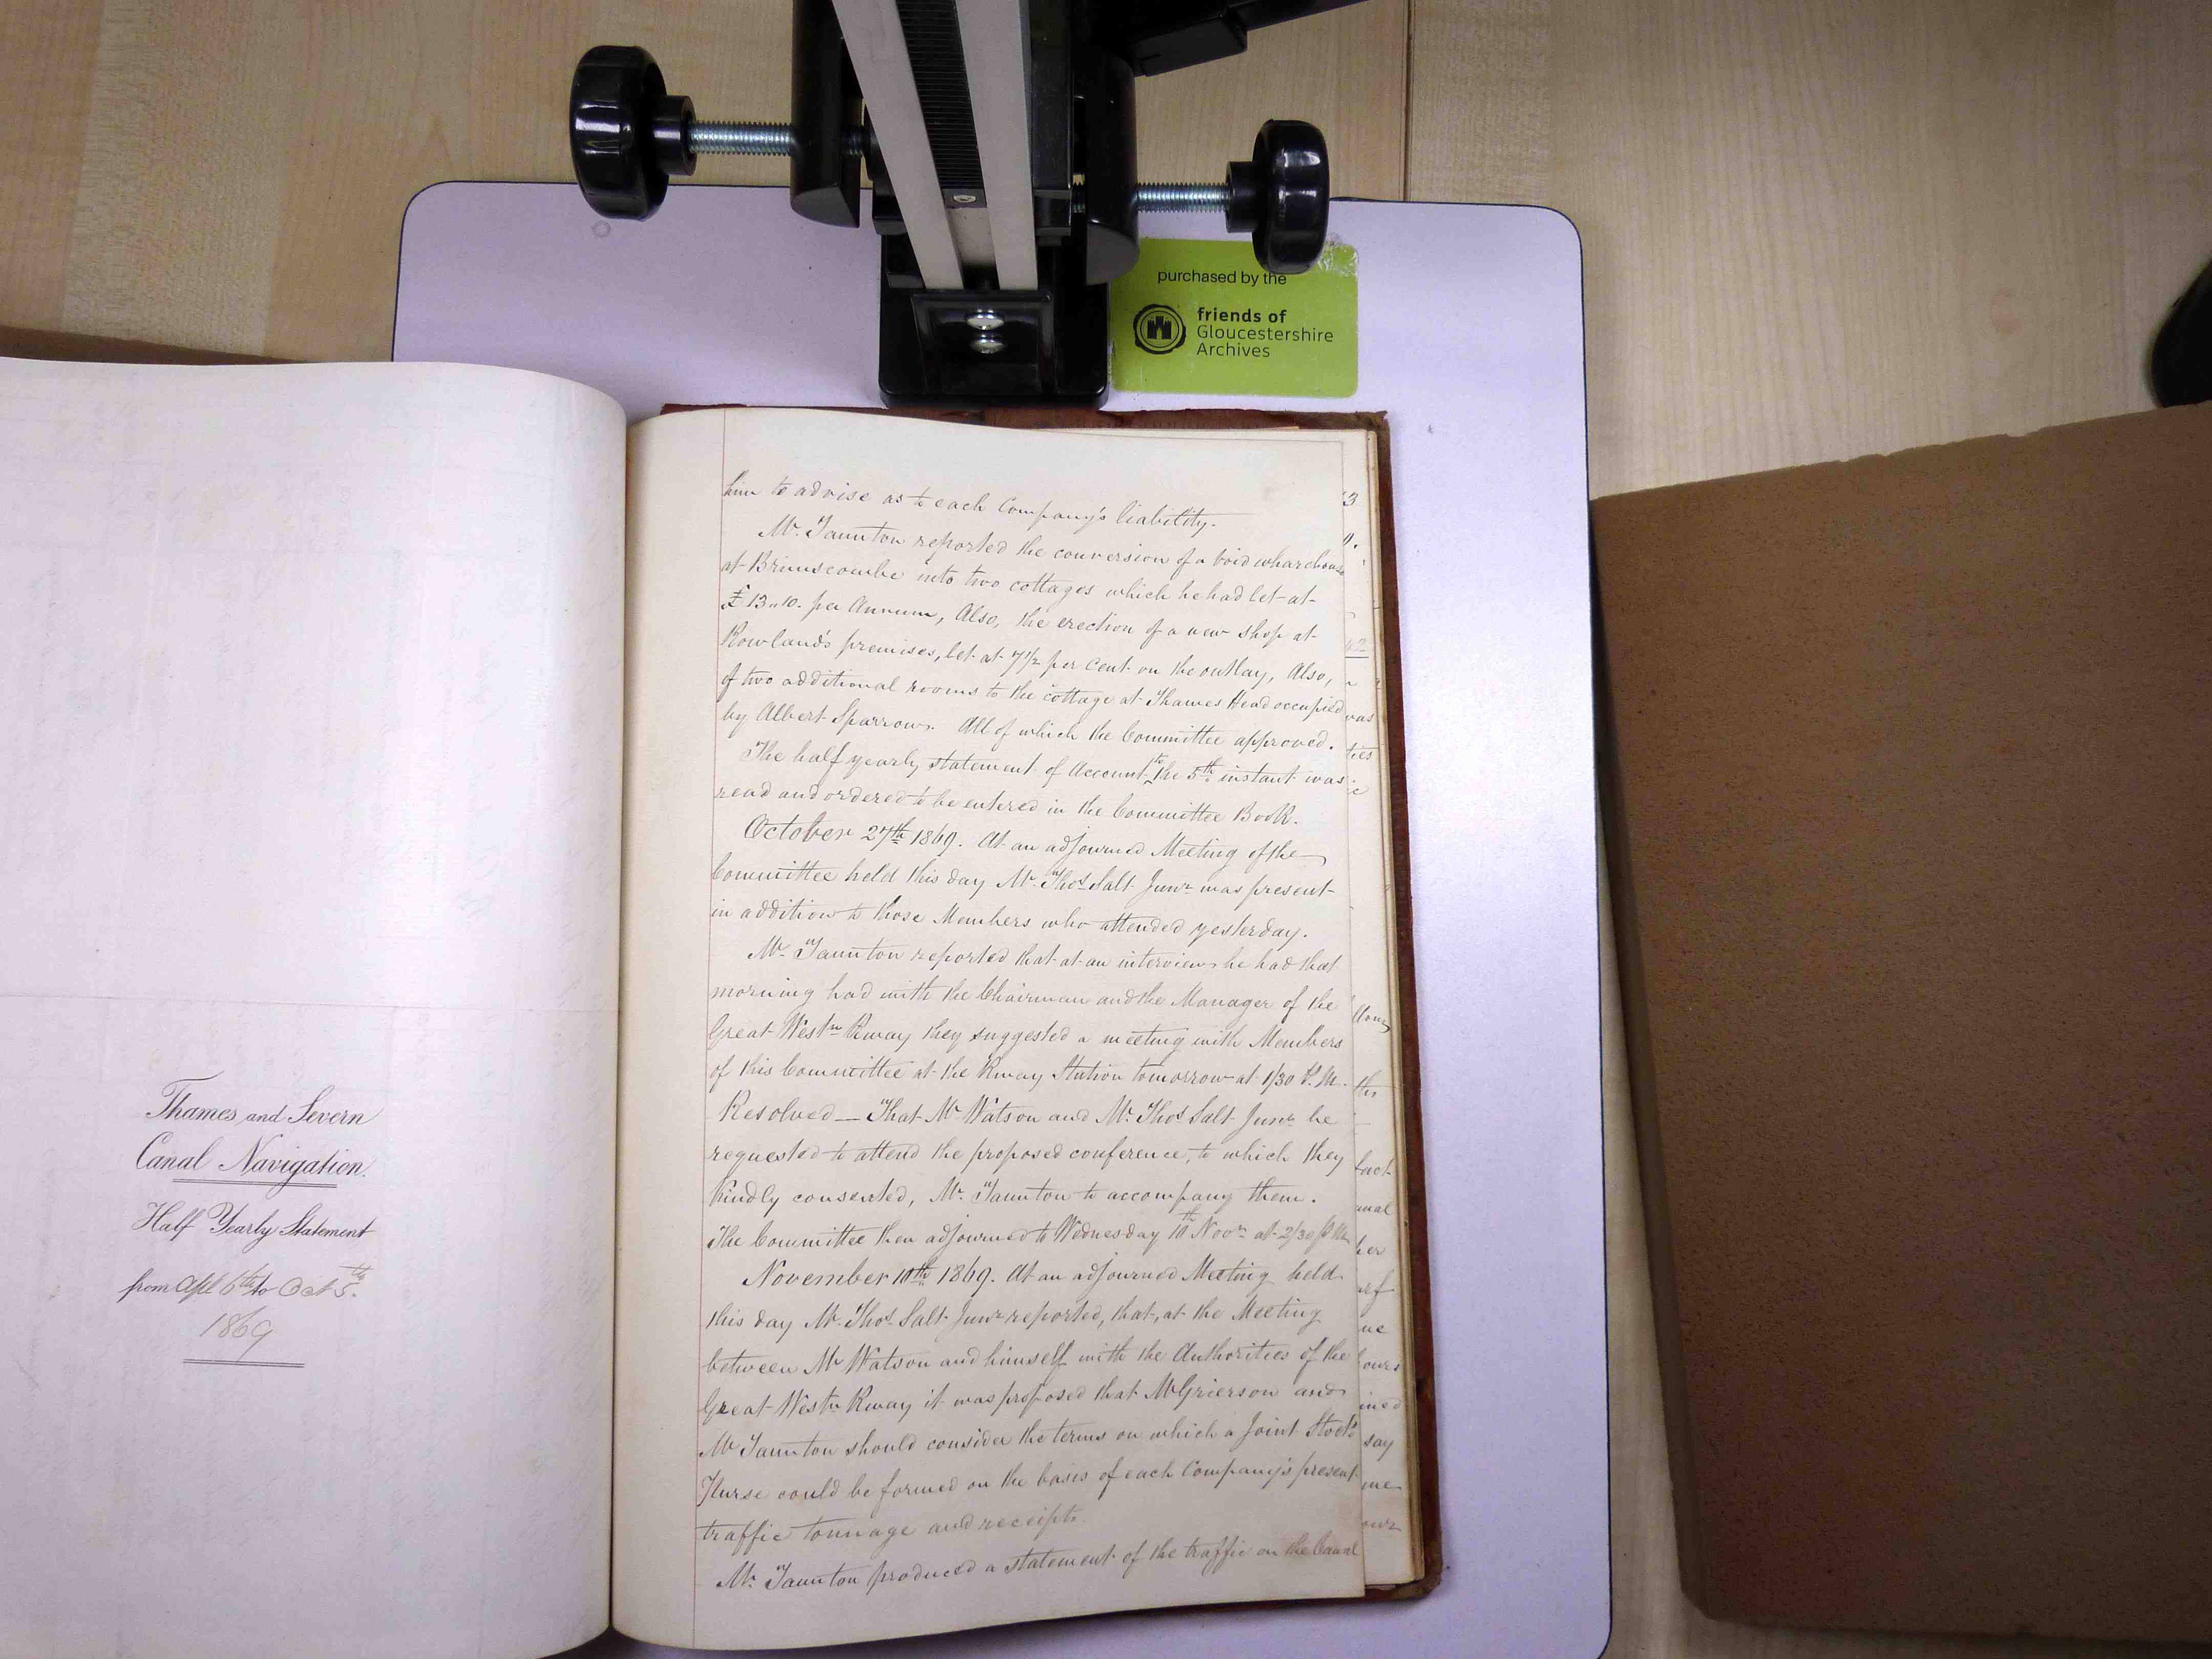 purchased by the
friends of
Gloucestershire
Archives
Thames and Severn
Canal Navigation.
Half Yearly Statement
from Apl 6th to Oct 5th.
1869
him to advise as to each Company's liability.
Mr. Taunton reported the conversion of a void wharehouse
at Brimscombe into two cottages which he had let at
£13.,10. per Annum, Also, the erection of a new shop at
Rowland's premises, let at 7 1/2 per Cent on the outlay, Also,
of two additional rooms to the cottage at Thames Head occupied
by Albert Sparrow. All of which the Committee approved.
The half yearly statement of Account to the 5th instant was
read and ordered to be entered in the Committee Book.
October 27th 1869. At an adjourned Meeting of the
Committee held this day Mr. Thos. Salt Junr was present
in addition to those Members who attended yesterday.
Mr. Taunton reported that at an interview he had that
morning had with the Chairman and the Manager of the
Great Westn Rway they suggested a meeting with Members
of this Committee at the Rway Station tomorrow at 1/30 P.M.
Resolved — That Mr Watson and Mr. Thos Salt Junr be
requested to attend the proposed conference, to which they
kindly consented, Mr. Taunton to accompany them.
The Committee then adjourned to Wednesday 10th Novr at 2/30 P.M.
November 10th 1869. At an adjourned Meeting held
this day Mr. Thos. Salt Junr reported, that, at the Meeting
between Mr Watson and himself with the Authorities of the
Great Westn Rway it was proposed that Mr Grierson and
Mr Taunton should consider the terms on which a Joint Stock
Purse could be formed on the basis of each Company's present
traffic tonnage and receipts.
Mr. Taunton produced a statement of the traffic on the Canal